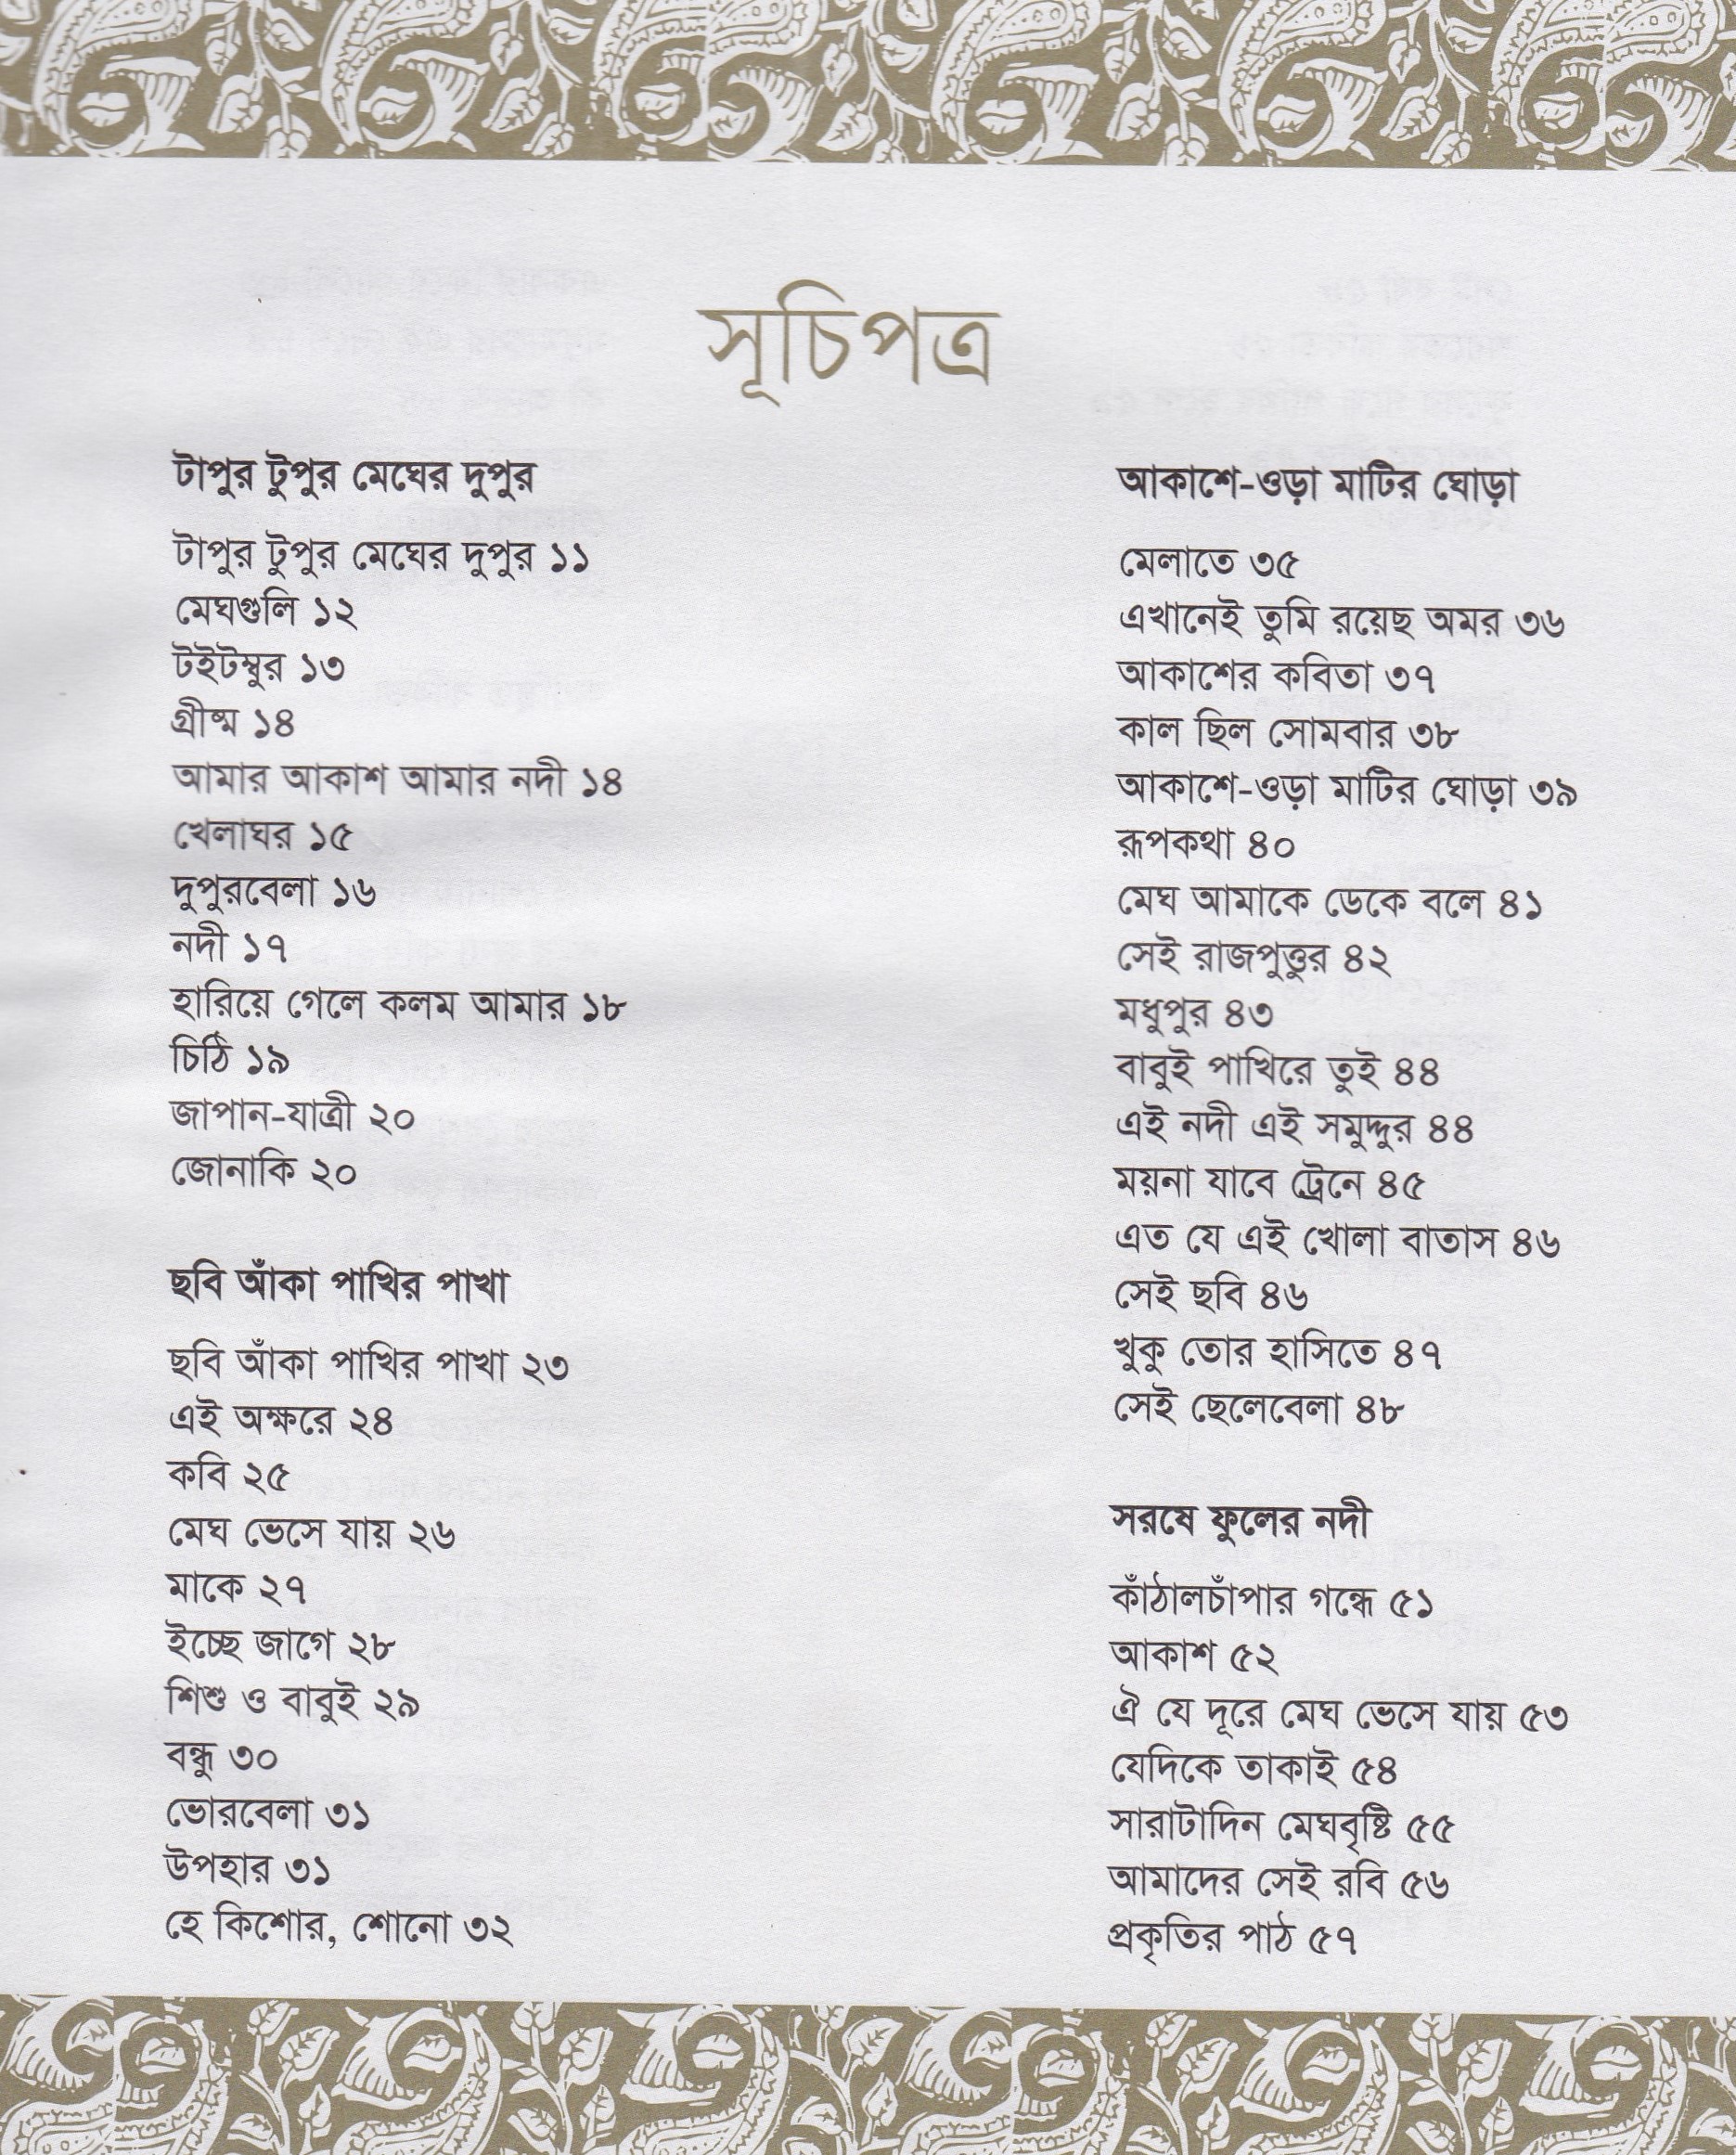 সূচিপত্র
টাপুর টুপুর মেঘের দুপুর
টাপুর টুপুর মেঘের দুপুর ১১
মেঘগুলি ১২
টইটম্বুর ১৩
গ্রীষ্ম ১৪
আমার আকাশ আমার নদী ১৪
খেলাঘর ১৫
দুপুরবেলা ১৬
নদী ১৭
হারিয়ে গেলে কলম আমার ১৮
চিঠি ১৯
জাপান-যাত্রী ২০
জোনাকি ২০
ছবি আঁকা পাখির পাখা
ছবি আঁকা পাখির পাখা ২৩
এই অক্ষরে ২৪
কবি ২৫
মেঘ ভেসে যায় ২৬
মাকে ২৭
ইচ্ছে জাগে ২৮
শিশু ও বাবুই ২৯
বন্ধু ৩০
ভোরবেলা ৩১
উপহার ৩১
হে কিশোর, শোনো ৩২
আকাশে-ওড়া মাটির ঘোড়া
মেলাতে ৩৫
এখানেই তুমি রয়েছ অমর ৩৬
আকাশের কবিতা ৩৭
কাল ছিল সোমবার ৩৮
আকাশে-ওড়া মাটির ঘোড়া ৩৯
রূপকথা ৪০
মেঘ আমাকে ডেকে বলে ৪১
সেই রাজপুত্তুর ৪২
মধুপুর ৪৩
বাবুই পাখিরে তুই ৪৪
এই নদী এই সমুদ্দুর ৪৪
ময়না যাবে ট্রেনে ৪৫
এত যে এই খোলা বাতাস ৪৬
সেই ছবি ৪৬
খুকু তোর হাসিতে ৪৭
সেই ছেলেবেলা ৪৮
সরষে ফুলের নদী
কাঁঠালচাঁপার গন্ধে ৫১
আকাশ ৫২
ঐ যে দূরে মেঘ ভেসে যায় ৫৩
যেদিকে তাকাই ৫৪
সারাটাদিন মেঘবৃষ্টি ৫৫
আমাদের সেই রবি ৫৬
প্রকৃতির পাঠ ৫৭